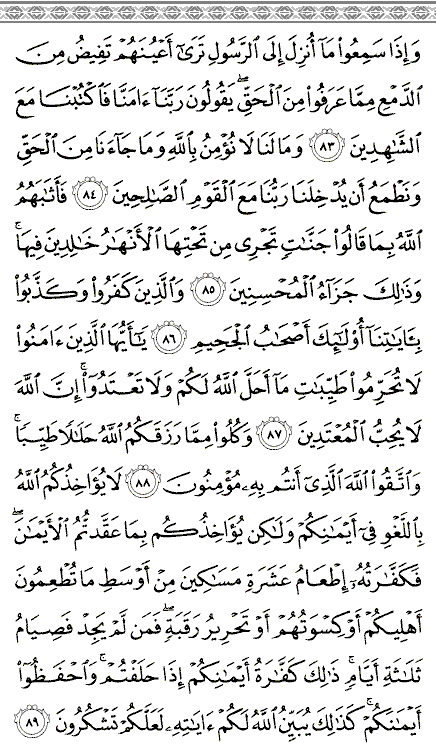 وَإِذَا سَمِعُوا۟ مَآ أُنزِلَ إِلَى ٱلرَّسُولِ تَرَىٰٓ أَعْيُنَهُمْ تَفِيضُ مِنَ
ٱلدَّمْعِ مِمَّا عَرَفُوا۟ مِنَ ٱلْحَقِّ ۖ يَقُولُونَ رَبَّنَآ ءَامَنَّا فَٱكْتُبْنَا مَعَ
ٱلشَّٰهِدِينَ ٨٣ وَمَا لَنَا لَا نُؤْمِنُ بِٱللَّهِ وَمَا جَآءَنَا مِنَ ٱلْحَقِّ
وَنَطْمَعُ أَن يُدْخِلَنَا رَبُّنَا مَعَ ٱلْقَوْمِ ٱلصَّٰلِحِينَ ٨٤ فَأَثَٰبَهُمُ
ٱللَّهُ بِمَا قَالُوا۟ جَنَّٰتٍ تَجْرِى مِن تَحْتِهَا ٱلْأَنْهَٰرُ خَٰلِدِينَ فِيهَا ۚ
وَذَٰلِكَ جَزَآءُ ٱلْمُحْسِنِينَ ٨٥ وَٱلَّذِينَ كَفَرُوا۟ وَكَذَّبُوا۟
بِـَٔايَٰتِنَآ أُو۟لَٰٓئِكَ أَصْحَٰبُ ٱلْجَحِيمِ ٨٦ يَٰٓأَيُّهَا ٱلَّذِينَ ءَامَنُوا۟
لَا تُحَرِّمُوا۟ طَيِّبَٰتِ مَآ أَحَلَّ ٱللَّهُ لَكُمْ وَلَا تَعْتَدُوٓا۟ ۚ إِنَّ ٱللَّهَ
لَا يُحِبُّ ٱلْمُعْتَدِينَ ٨٧ وَكُلُوا۟ مِمَّا رَزَقَكُمُ ٱللَّهُ حَلَٰلًا طَيِّبًا ۚ
وَٱتَّقُوا۟ ٱللَّهَ ٱلَّذِىٓ أَنتُم بِهِۦ مُؤْمِنُونَ ٨٨ لَا يُؤَاخِذُكُمُ ٱللَّهُ
بِٱللَّغْوِ فِىٓ أَيْمَٰنِكُمْ وَلَٰكِن يُؤَاخِذُكُم بِمَا عَقَّدتُّمُ ٱلْأَيْمَٰنَ ۖ
فَكَفَّٰرَتُهُۥٓ إِطْعَامُ عَشَرَةِ مَسَٰكِينَ مِنْ أَوْسَطِ مَا تُطْعِمُونَ
أَهْلِيكُمْ أَوْ كِسْوَتُهُمْ أَوْ تَحْرِيرُ رَقَبَةٍ ۖ فَمَن لَّمْ يَجِدْ فَصِيَامُ
ثَلَٰثَةِ أَيَّامٍ ۚ ذَٰلِكَ كَفَّٰرَةُ أَيْمَٰنِكُمْ إِذَا حَلَفْتُمْ ۚ وَٱحْفَظُوٓا۟
أَيْمَٰنَكُمْ ۚ كَذَٰلِكَ يُبَيِّنُ ٱللَّهُ لَكُمْ ءَايَٰتِهِۦ لَعَلَّكُمْ تَشْكُرُونَ ٨٩